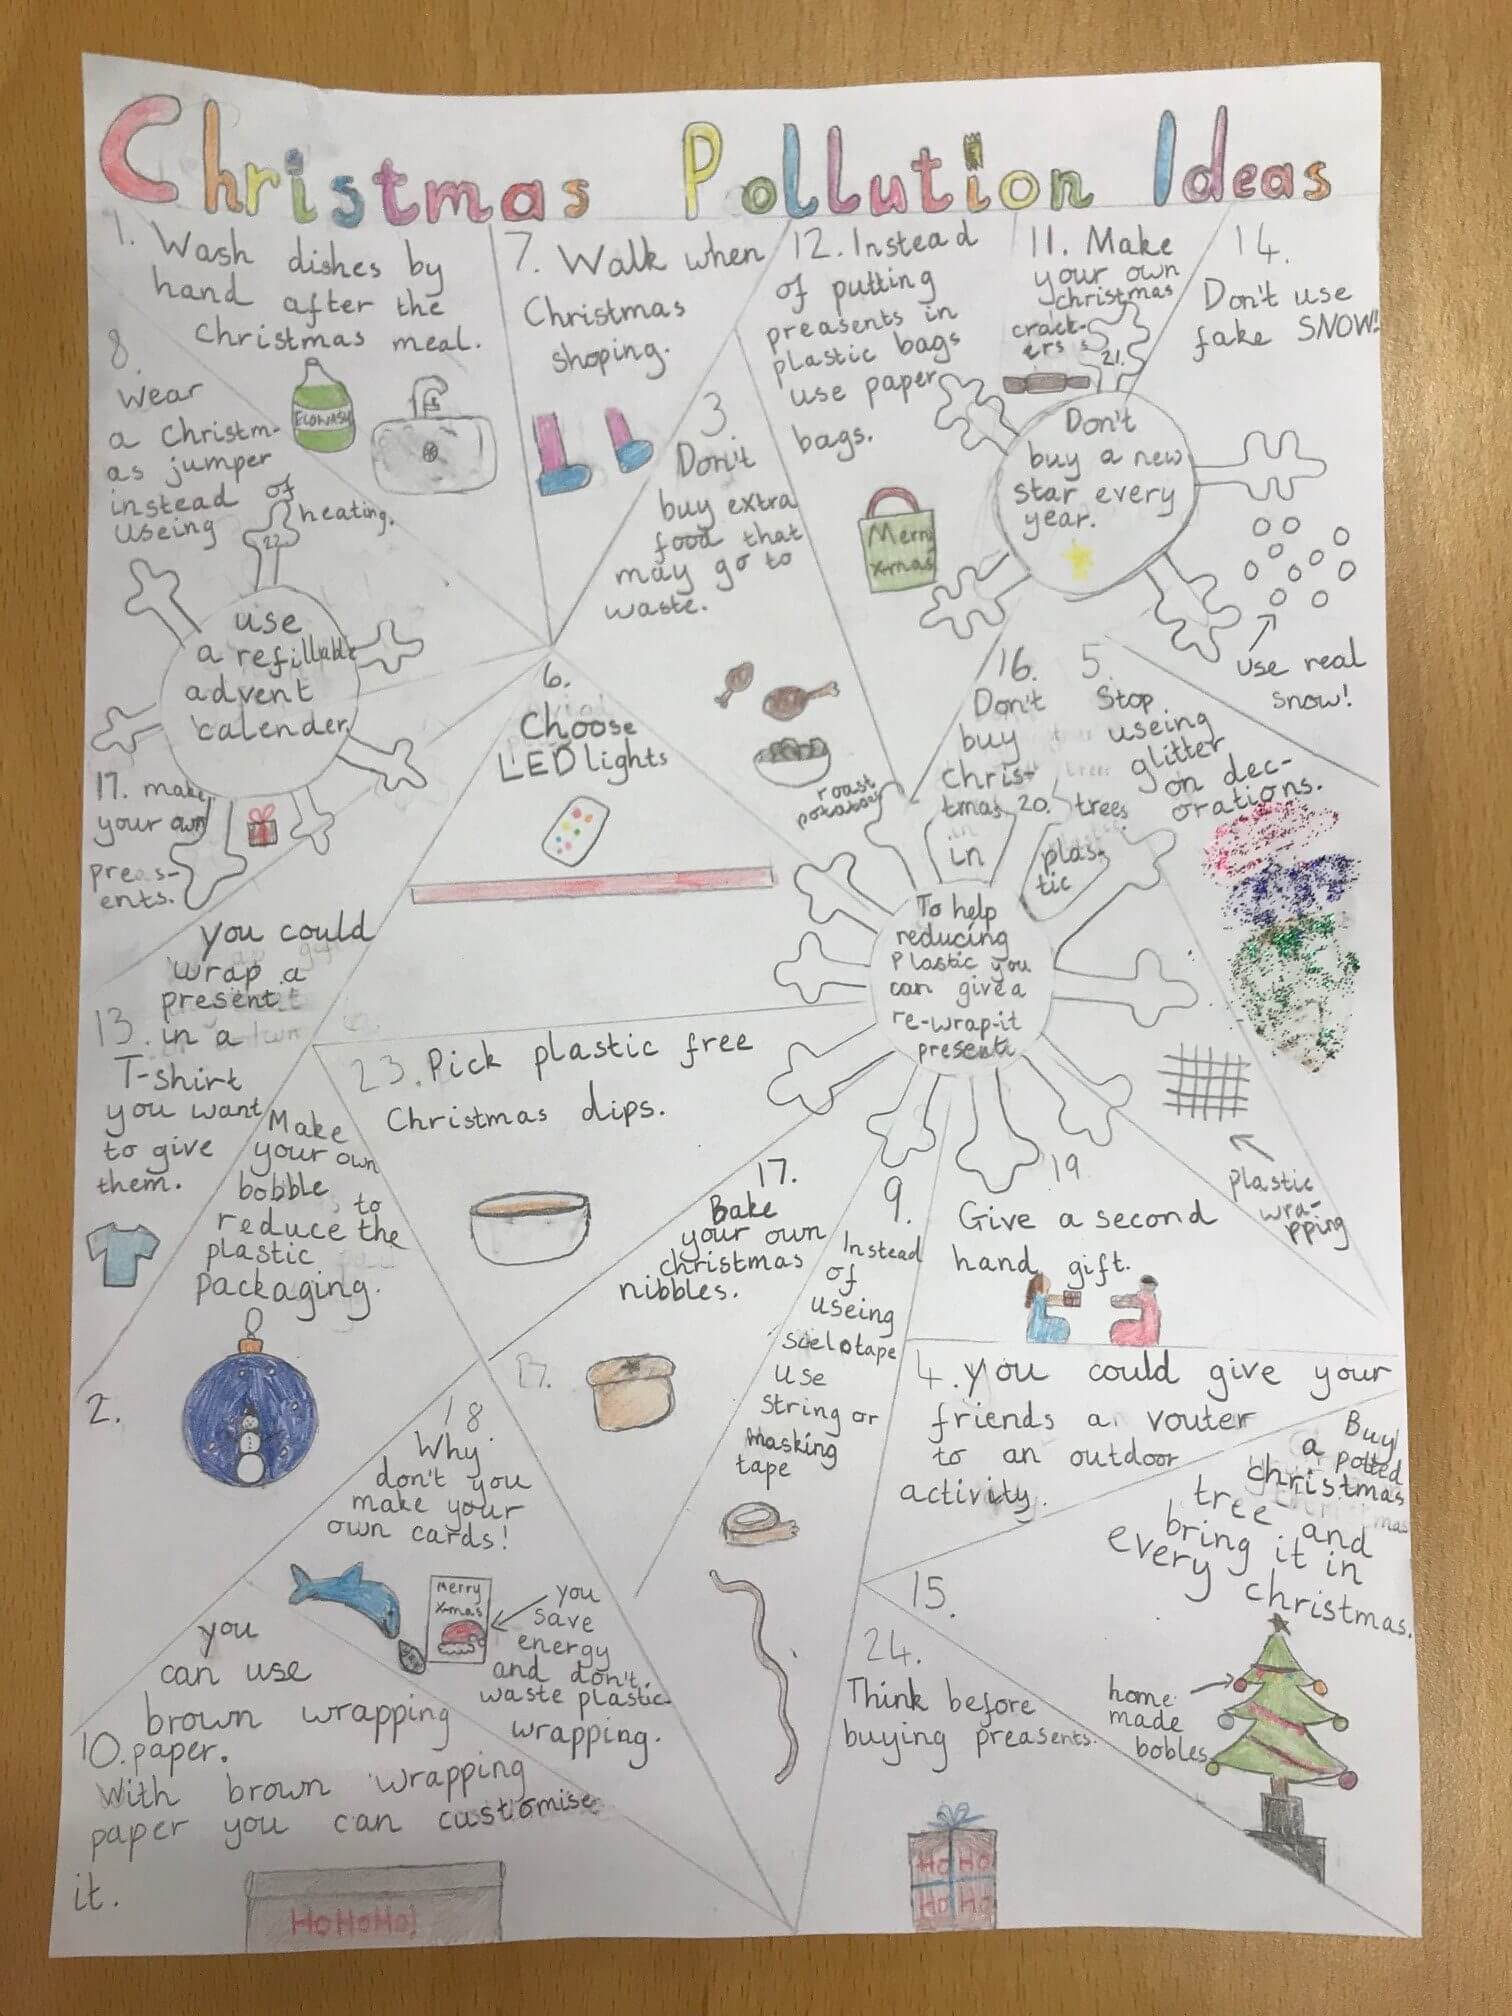 Christmas Pollution Ideas
1. Wash dishes by
hand after the
christmas meal.
ECOWASH
7. Walk when
Christmas
shoping.
12. Instead
of putting
preasents in
plastic bags
use paper
bags.
Merry
x-mas
11. Make
your own
christmas
crack-
ers
14.
Don't use
fake SNOW!
use real
snow!
8.
Wear
a Christm-
as jumper
instead of
useing heating.
3.
Don't
buy extra
food that
may go to
waste.
roast
potatoes
21.
Don't
buy a new
star every
year.
22.
use
a refillable
advent
calender.
6.
Choose
LED lights
16.
Don't
buy
chris-
tmas trees
in plas-
tic
5.
Stop
useing
glitter
on dec-
orations.
17. make
your own
preas-
ents.
20.
To help
reducing
plastic you
can give a
re-wrap-it
present
plastic
wra-
pping
13.
you could
wrap a
present
in a
T-shirt
you want
to give
them.
23. Pick plastic free
Christmas dips.
2.
Make
your own
bobble, to
reduce the
plastic
packaging.
17.
Bake
your own
christmas
nibbles.
17.
9.
Instead
of
useing
selotape
use
string or
masking
tape
19
Give a second
hand gift.
4. you could give your
friends a vouter
to an outdoor
activity.
18
Why
don't you
make your
own cards!
Merry
x-mas
you
save
energy
and don't
waste plastic
wrapping.
15.
Buy
a potted
christmas
tree and
bring it in
every christmas.
home
made
bobles
10.
you
can use
brown wrapping
paper.
With brown wrapping
paper you can customise
it.
HoHoHo!
24.
Think before
buying preasents.
Ho Ho
Ho Ho